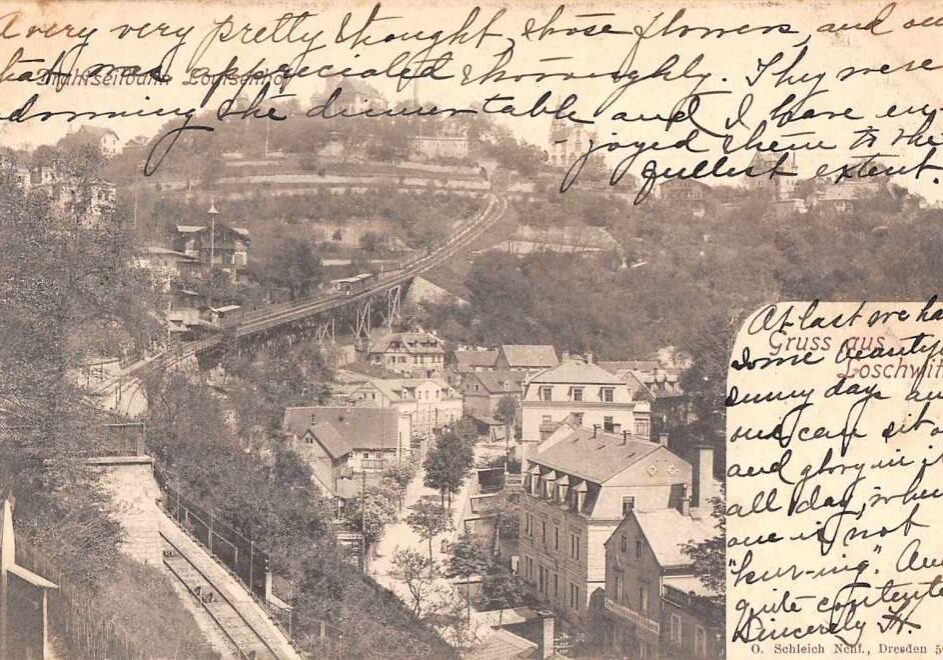 A very very pretty thought, those flowers, and one
that was appreciated thoroughly. They were
adorning the dinner table and I have en
joyed them to the
fullest extent.
Drahtseilbahn Loschwitz
At last we ha
Gruss aus
some beautif
Loschwitz
sunny days an
one can sit o
and glory in it
all day, when
one is not
"kur-ing". Am
quite contente
Sincerely H.
O. Schleich Nchf., Dresden 5